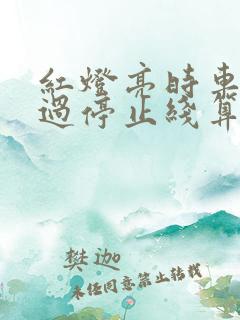 紅燈亮時車
過停止綫算
樊迦
未经同意禁止转载